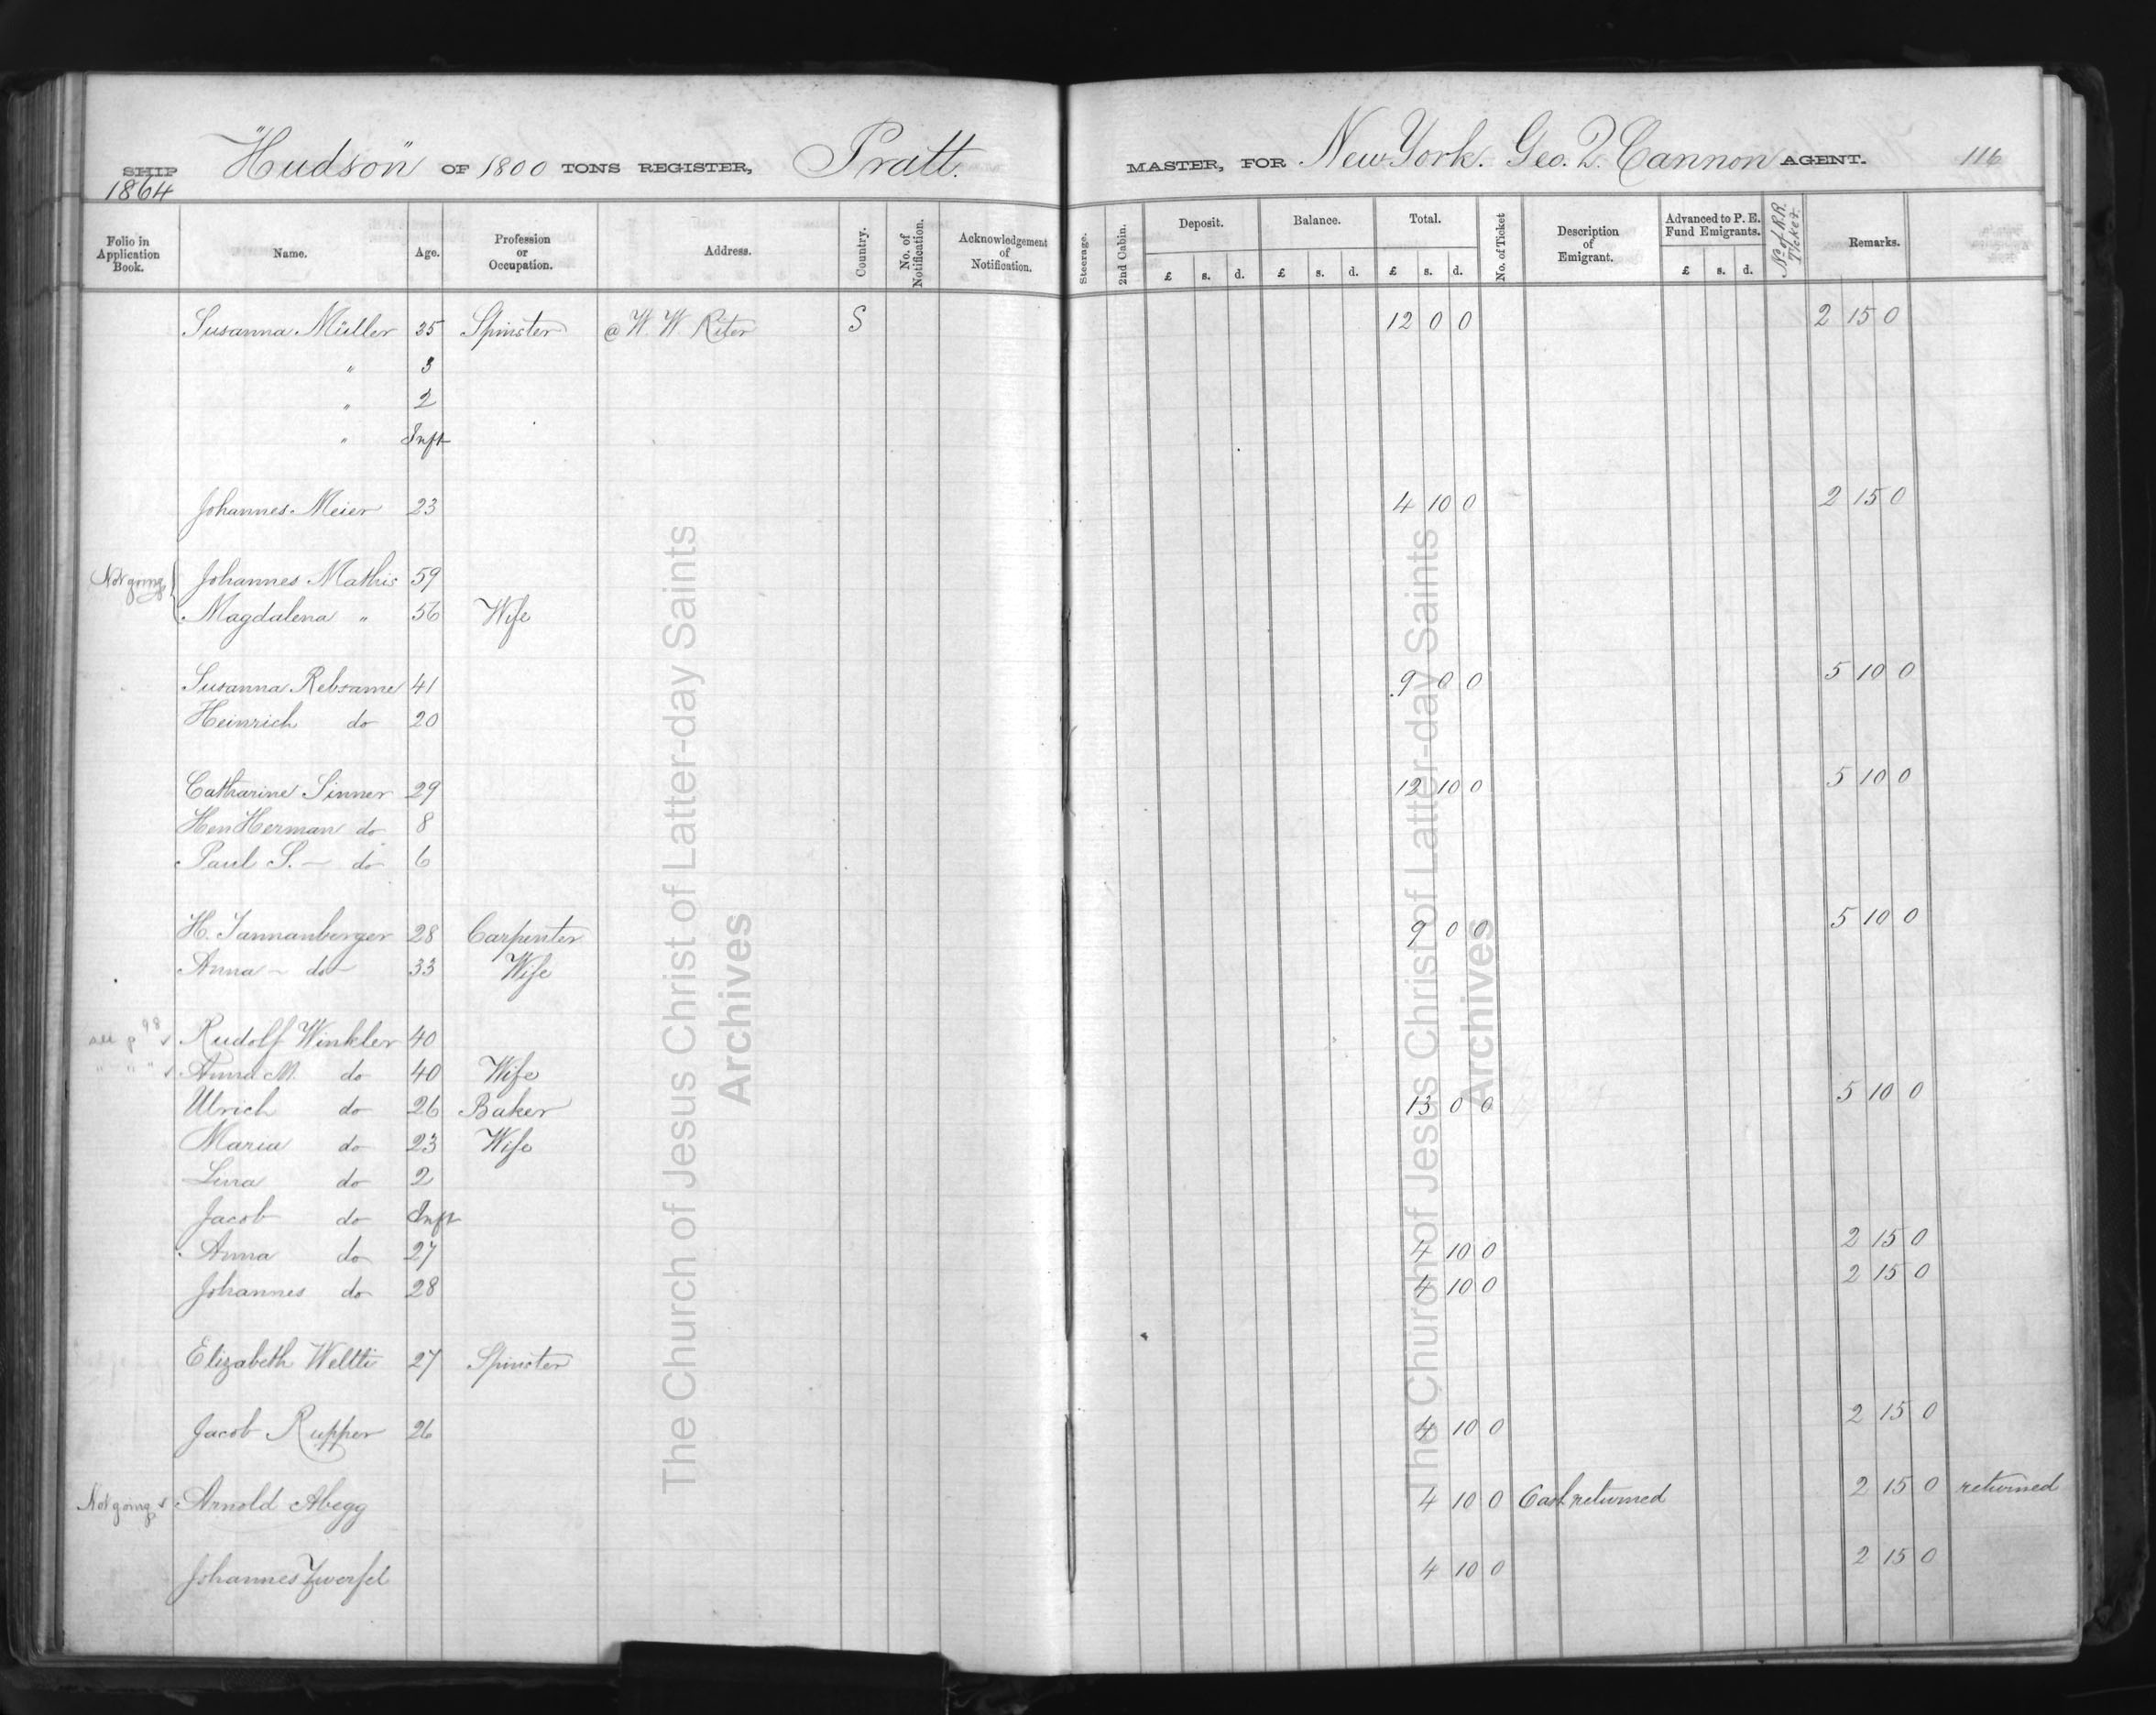 SHIP "Hudson" OF 1800 TONS REGISTER, Pratt. MASTER, FOR New York. Geo. Q. Cannon AGENT. 116
1864
Folio in Application Book. Name. Age. Profession or Occupation. Address. Country. No. of Notification. Acknowledgement of Notification. Steerage. 2nd Cabin. Deposit. Balance. Total. No. of Ticket Description of Emigrant. Advanced to P. E. Fund Emigrants. No. of R.R. Ticket Remarks.
£ s. d. £ s. d. £ s. d. £ s. d.
Susanna Müller 35 Spinster @ W. W. Riter S 12 0 0 2 15 0
" 3
" 2
" Inft
Johannes Meier 23 4 10 0 2 15 0
Not going Johannes Mathis 59
Magdalena " 56 Wife
Susanna Rebsame 41 9 0 0 5 10 0
Heinrich do 20
Catharine Sinner 29 12 10 0 5 10 0
Hen Herman do 8
Paul S. — do 6
H. Tannanberger 28 Carpenter 9 0 0 5 10 0
Anna — do — 33 Wife
see p 98 Rudolf Winkler 40
" " " Anna M. do 40 Wife
Ulrich do 26 Baker 13 0 0 5 10 0
Maria do 23 Wife
Lina do 2
Jacob do Inft
Anna do 27 4 10 0 2 15 0
Johannes do 28 4 10 0 2 15 0
Elizabeth Weltti 27 Spinster
Jacob Rupper 26 4 10 0 2 15 0
Not going Arnold Abegg 4 10 0 Cash returned 2 15 0 returned
Johannes Zwerfel 4 10 0 2 15 0
The Church of Jesus Christ of Latter-day Saints
Archives
The Church of Jesus Christ of Latter-day Saints
Archives